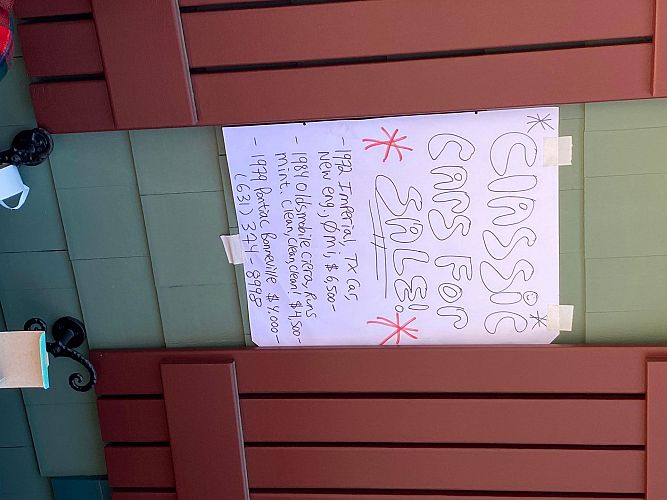 CLASSIC
CARS FOR
SALE!
- 1972 Imperial, TX Car,
New eng, Ømi, $6,500-
- 1984 Oldsmobile Ciera, Runs
mint. Clean, clean, clean! $4,500-
- 1979 Pontiac Bonneville $4,000-
(631) 374-8998